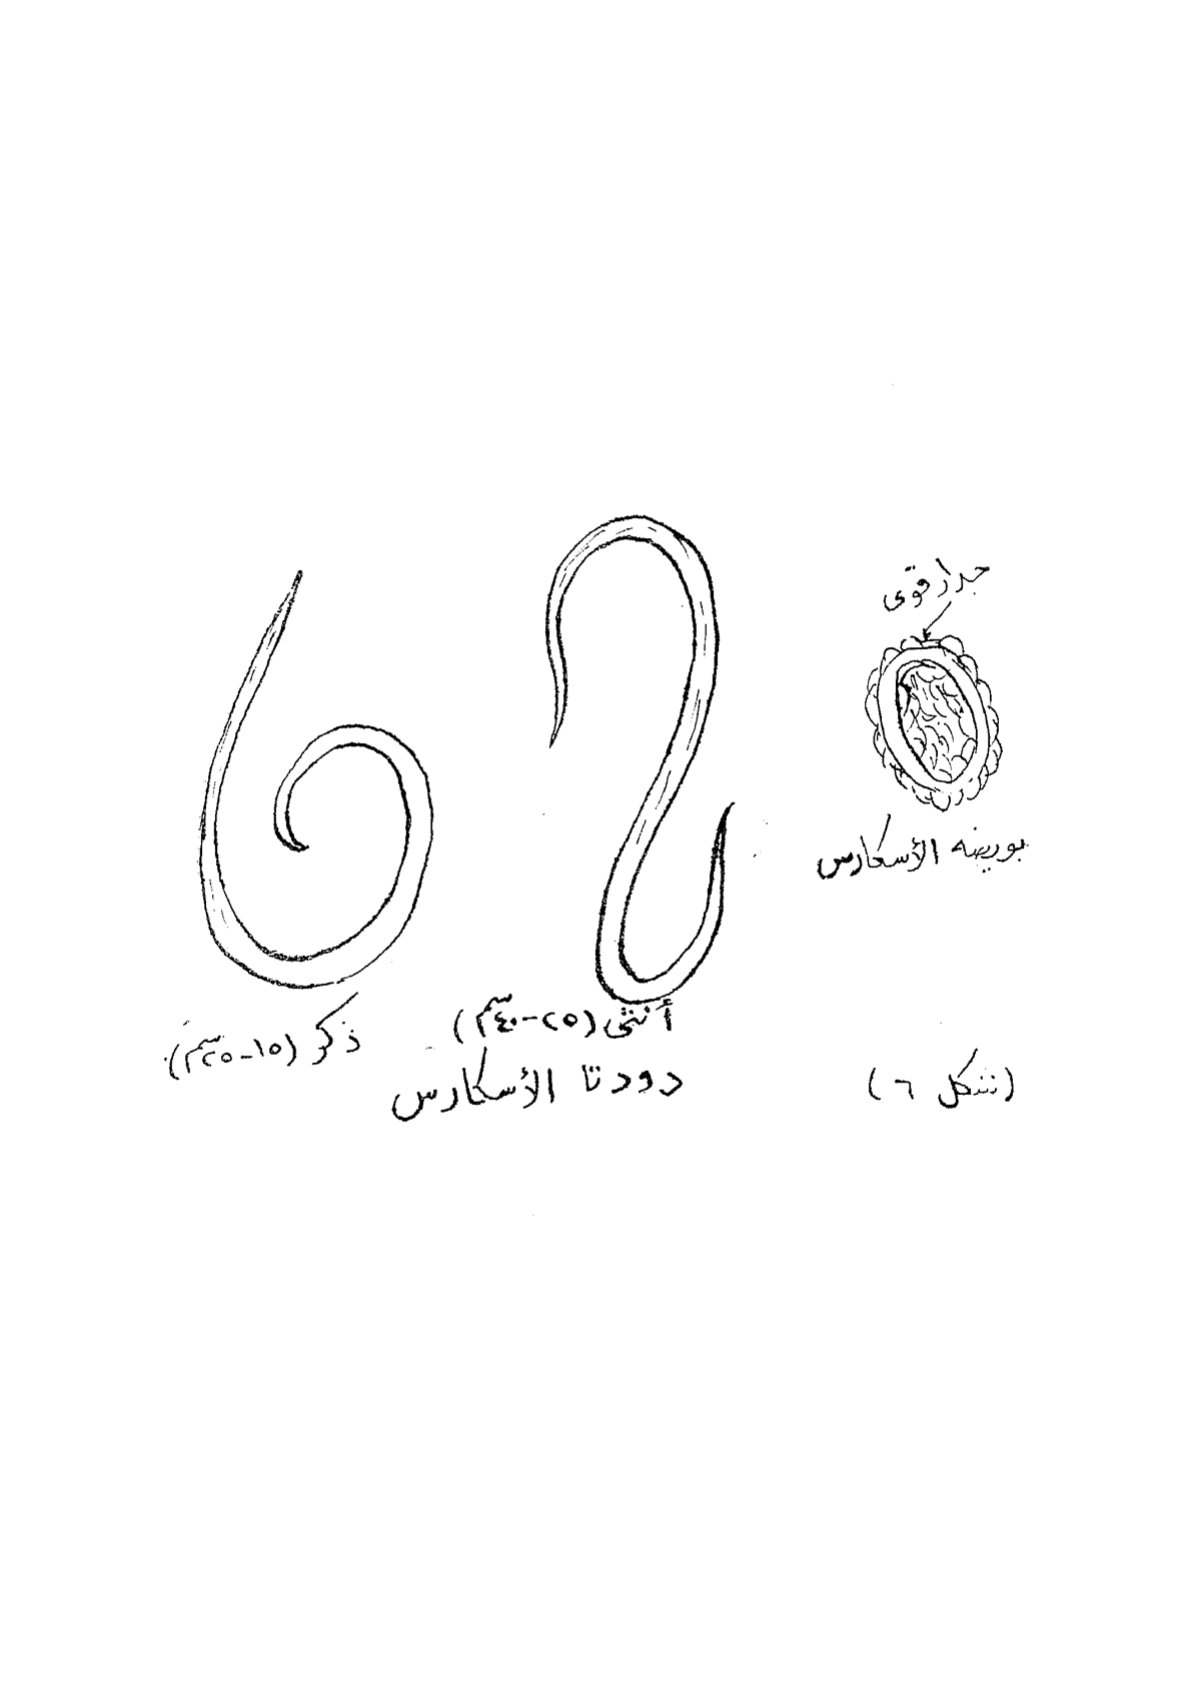 جدار قوى
بويضه الأسكارس
أنثى (٢٥-٤٠ سم)
ذكر (١٥-٢٥ سم)
دودتا الأسكارس
(شكل ٦)